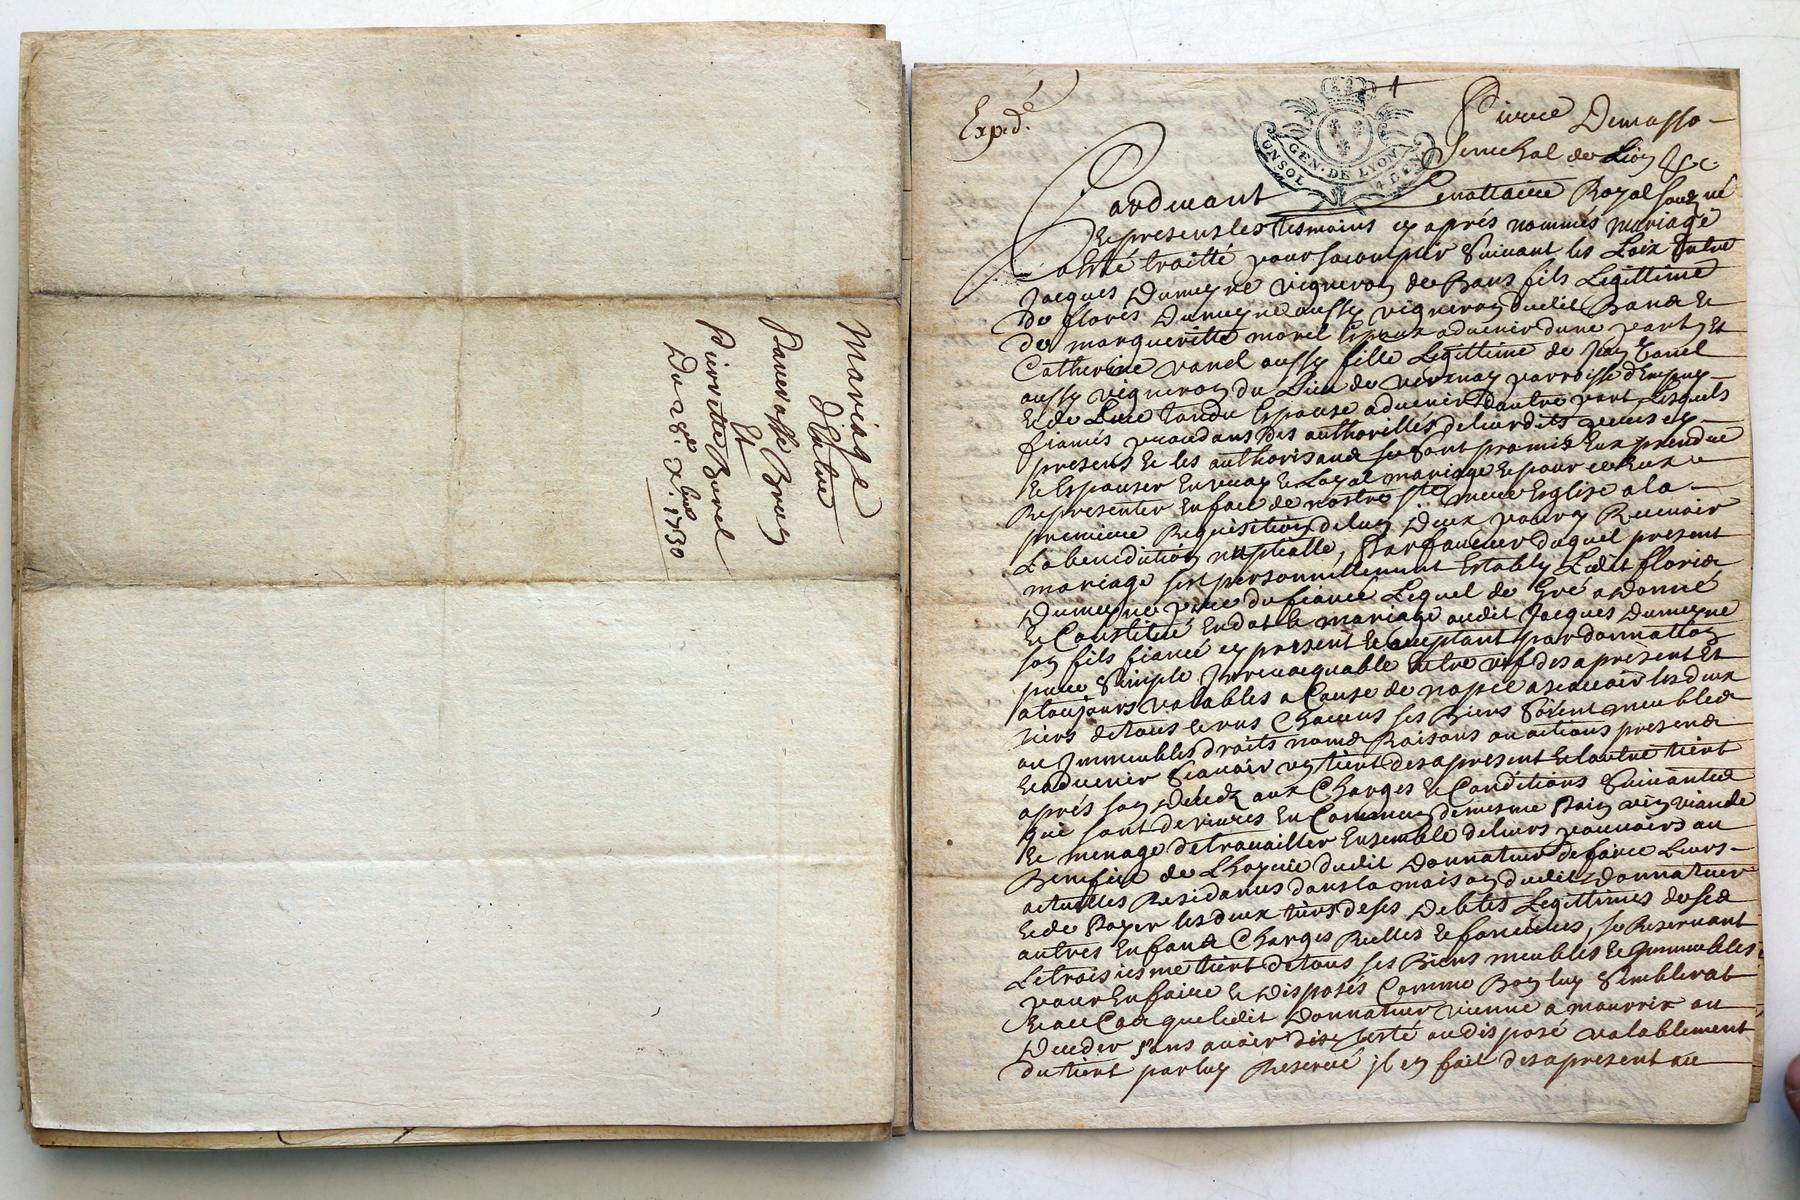 Mariage
d'Entre
Et
Pierrette Burel
Du 28.e x.bre 1730
Exped.é
GEN. DE LYON
Pierre Demasso
Senechal de Lion &c
Pardevant Le nottaire Royal soubz.né
Et presens les tesmoins cy aprés nommés mariage
a esté traitté pour sacomplir suivant les Loix Entre
Jacques Dumeyne vigneron de Bans fils Legittime
de floris Dumeyne aussy vigneron dudit Bans Et
de margueritte morel Espoux advenir dune part, Et
Catherine vanel aussy fille Legittime de Jean vanel
aussy vigneron du Lieu de vernay parroisse
Et de Espouse advenir dautre part, Lesquels
fiancés procedans des authorittés de leurdits peres cy
presens Et les authorisans se sont promis Eux prendre
Et Espouser En vray Et Loyal mariage Et pour ce Eux
Representer En face de nostre s.te mere Eglise a la
premiere Requisition de lun deux pour y Recevoir
La benediction nuptialle, En faveur duquel present
mariage sest personnellement Estably Ledit floris
Dumeyne pere du fiancé Lequel de Gré a donné
Et Constitué En dot Et mariage audit Jacques Dumeyne
son fils fiancé cy present Et acceptant par donnation
pure simple Irrevocquable Entre vifs des a present Et
a toujours valables a Cause de nopce ascavoir les deux
tiers de tous Et uns Chacuns ses Biens soient meubles
ou Immeubles droits noms Raisons ou actions presens
Et advenir scavoir un tiert des a present Et lautre tiert
aprés son Decedz aux Charges Et Conditions suivantes
qui sont de vivres En Commun de mesme Pain vin viande
Et menage de travailler Ensemble de leurs pouvoirs au
Benefice de Lhoyrie dudit Donnateur de faire Leurs
actuelles Residances dans la maison dudit Donnateur
Et de Payer les deux tiers de ses Debtes Legittimes de ses
autres Enfans Charges Reelles Et foncieres, se Reservant
Le troisiesme tiert de tous ses Biens meubles Et Immeubles
pour En faire Et disposer Comme Bon luy semblerat
Et au Cas que ledit Donnateur vienne a mourrir ou
Deceder sans avoir disposé valablement
du tiert par luy Reservé il En fait des apresent au